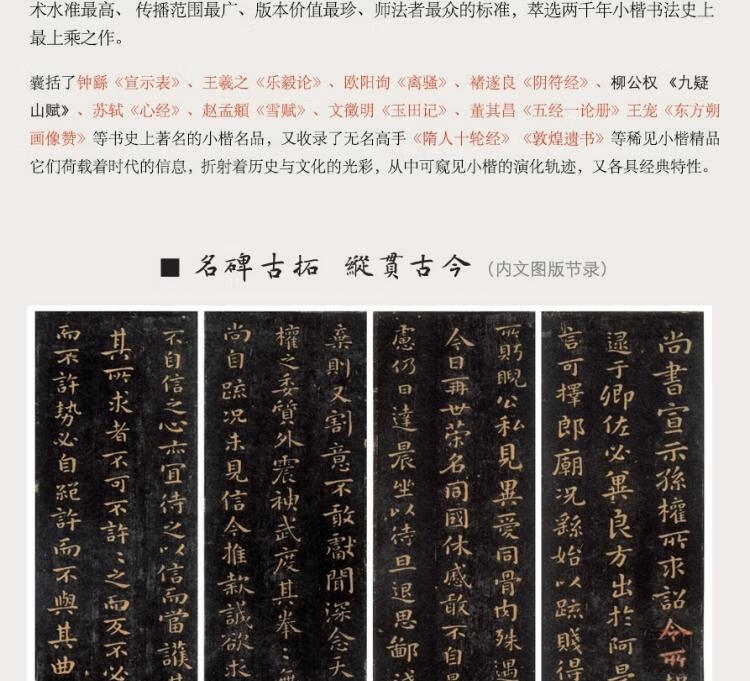 术水准最高、传播范围最广、版本价值最珍、师法者最众的标准，萃选两千年小楷书法史上
最上乘之作。
囊括了钟繇《宣示表》、王羲之《乐毅论》、欧阳询《离骚》、褚遂良《阴符经》、柳公权《九疑
山赋》、苏轼《心经》、赵孟頫《雪赋》、文徵明《玉田记》、董其昌《五经一论册》王宠《东方朔
画像赞》等书史上著名的小楷名品，又收录了无名高手《隋人十轮经》《敦煌遗书》等稀见小楷精品
它们荷载着时代的信息，折射着历史与文化的光彩，从中可窥见小楷的演化轨迹，又各具经典特性。
■ 名碑古拓 縱貫古今（内文图版节录）
尚書宣示孫權所求詔令所
逮于卿佐必兾良方出於阿是
言可擇郎廟況繇始以疏賤得
所盼睨公私見異愛同骨肉殊遇
今日再世榮名同國休慼敢不自
慮仍日達晨坐以待旦退思鄙
棄則又割意不敢獻聞深念天
權之委質外震神武度其拳〻無
尚自疏況未見信今推款誠欲求
不自信之心亦宜待之以信而當護其
其所求者不可不許〻之而反不必
而不許勢必自絕許而不與其曲